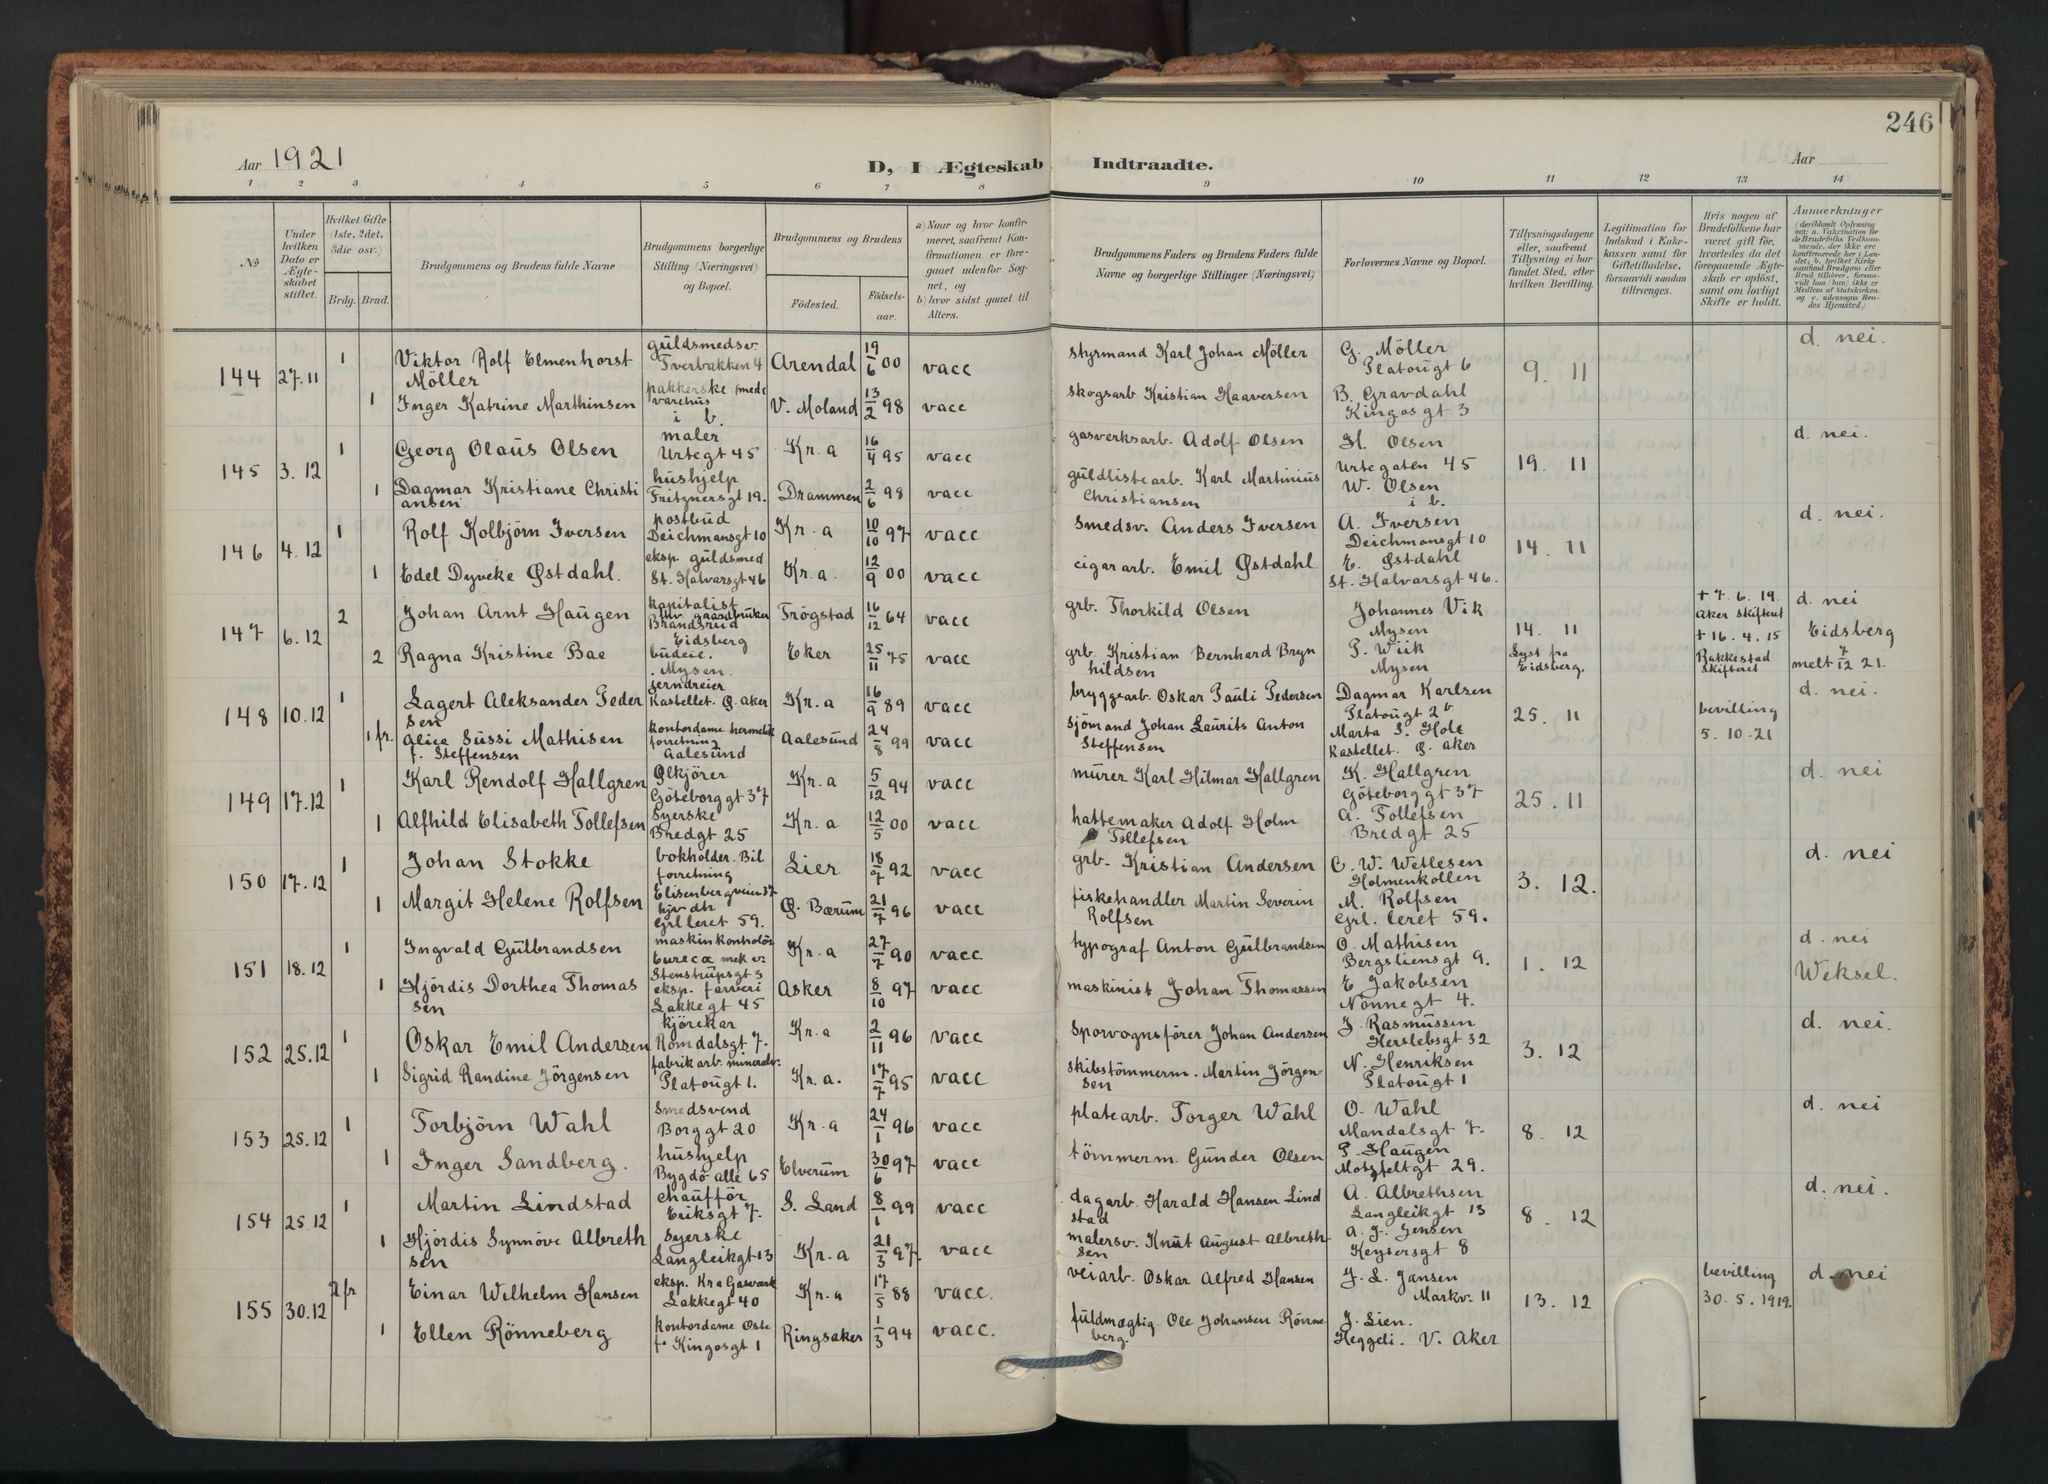 246
Aar 1921
D, I Ægteskab Indtraadte.
Aar
1 2 3 4 5 6 7 8 9 10 11 12 13 14
No
Under hvilken Dato er Ægteskabet stiftet.
Hvilket Gifte (1ste, 2det, 3die osv.)
Brdg. Brud.
Brudgommens og Brudens fulde Navne
Brudgommens borgerlige Stilling (Næringsvei) og Bopæl.
Brudgommens og Brudens
Fødested. Fødselsaar.
a) Naar og hvor konfirmeret, saafremt Konfirmationen er foregaaet udenfor Sognet, og
b) hvor sidst gaaet til Alters.
Brudgommens Faders og Brudens Faders fulde Navne og borgerlige Stillinger (Næringsvei)
Forlovernes Navne og Bopæl.
Tillysningsdagene eller, saafremt Tillysning ei har fundet Sted, efter hvilken Bevilling.
Legitimation for Indskud i Enkekassen samt for Giftetilladelse, forsaavidt saadan tiltrænges.
Hvis nogen af Brudefolkene har været gift før, hvorledes da det foregaaende Ægteskab er opløst, samt om lovligt Skifte er holdt.
Anmærkninger
144 27.11 1 Viktor Rolf Elmenhorst Möller guldsmedsv. Tverbakken 4 Arendal 19/6 00 vacc styrmand Karl Johan Möller G. Möller Platougt 6 9. 11 d. nei.
1 Inger Katrine Marthinsen pakkerske varehus i b. V. Moland 13/2 98 vacc skogsarb Kristian Haaversen B. Gravdahl Kingosgt 3
145 3.12 1 Georg Olaus Olsen maler Urtegt 45 Kr.a 16/4 95 vacc gasverksarb. Adolf Olsen H. Olsen Urtegaten 45 19. 11 d. nei.
1 Dagmar Kristiane Christiansen hushjelp Fritznersgt 19. Drammen 2/6 98 vacc guldlistearb. Karl Martinius Christiansen W. Olsen i b.
146 4.12 1 Rolf Kolbjörn Iversen postbud Deichmansgt 10 Kr.a 10/10 97 vacc Smedsv. Anders Iversen A. Iversen Deichmansgt 10 14. 11 d. nei.
1 Edel Dyveke Østdahl. eksp. guldsmed St. Halvarsgt 46 Kr.a. 12/9 00 vacc cigararb. Emil Østdahl E. Østdahl St. Halvarsgt 46.
147 6.12 2 Johan Arnt Haugen kapitalist fhv. gaardbruker Brandsrud Eidsberg Trögstad 16/12 64 vacc grb. Thorkild Olsen Johannes Vik Mysen 14. 11 + 7. 6. 19. Aker skifteret d. nei Eidsberg
2 Ragna Kristine Bae budeie. Mysen. Eker 25/11 75 vacc grb. Kristian Bernhard Brynhildsen P. Wiik Mysen Lyst fra Eidsberg. + 16. 4. 15 Rakkestad skifteret melt 7/12 21.
148 10.12 1 Lagert Aleksander Pedersen jerndreier Kastellet. Ø. Aker Kr.a 16/9 89 vacc bryggearb. Oskar Pauli Pedersen Dagmar Karlsen Platougt 2b 25. 11 bevilling 5.10.21 d. nei.
1 fr. Alice Sussi Mathisen f. Steffensen kontordame hermetikforretning Aalesund Aalesund 24/8 99 vacc sjömand Johan Laurits Anton Steffensen Marta S. Hole Kastellet. Ø. aker
149 17.12 1 Karl Rendolf Hallgren Ølkjörer Göteborggt 37 Kr.a 5/12 94 vacc murer Karl Hilmar Hallgren K. Hallgren Göteborggt 37 25. 11 d. nei
1 Alfhild Elisabeth Tollefsen Syerske Bredgt 25 Kr.a 12/5 00 vacc hattemaker Adolf Holm Tollefsen A. Tollefsen Bredgt 25
150 17.12 1 Johan Stokke bokholder. Bil forretning Elisenbergveien 37 Lier 18/7 92 vacc grb. Kristian Andersen O. W. Wetlesen Holmenkollen 3. 12. d. nei
1 Margit Helene Rolfsen hjv. dtr Grl leret 59. Ø. Bærum 21/7 96 vacc fiskehandler Martin Severin Rolfsen M. Rolfsen Grl. leret 59.
151 18.12 1 Ingvald Gulbrandsen maskinkontrolör Eureca mek v. Stenstrupsgt 3 Kr.a 27/7 90 vacc typograf Anton Gulbrandsen O. Mathisen Bergsliensgt 9. 1. 12 d. nei Weksel.
1 Hjördis Dorthea Thomassen eksp. farveri Lakkegt 45 Asker 8/10 97 vacc maskinist Johan Thomassen E Jakobsen Nonnegt 4.
152 25.12 1 Oskar Emil Andersen kjörekar Romdalsgt 7. Kr.a 2/11 96 vacc Sporvognsförer Johan Andersen J. Rasmussen Herslebsgt 32 3. 12 d. nei.
1 Sigrid Randine Jörgensen fabrikarb. mineralv. Platougt 1. Kr.a. 17/7 95 vacc skibstömmerm. Martin Jörgensen N. Henriksen Platougt 1
153 25.12 1 Torbjörn Wahl Smedsvend Borggt 20 Kr.a 24/1 96 vacc platearb. Torger Wahl O. Wahl Mandalsgt 7. 8. 12 d. nei
1 Inger Sandberg. hushjelp Bygdö alle 65 Elverum 30/6 97 vacc tömmerm. Gunder Olsen P. Haugen Motzfeltgt 29.
154 25.12 1 Martin Lindstad chaufför Eriksgt 7. S. Land 8/1 99 vacc dagarb. Harald Hansen Lindstad A. Albrethsen Langleikgt 13 8. 12 d. nei.
1 Hjördis Synnöve Albrethsen Syerske Langleikgt 13 Kr.a 21/3 97. vacc malersv. Knut August Albrethsen A. J. Jensen Keysersgt 8
155 30.12 2 fr Einar Wilhelm Hansen eksp. Kra Gasverk Lakkegt 40 Kr.a 17/5 88 vacc. veiarb. Oskar Alfred Hansen J. L. Jansen Markv. 11 13. 12 bevilling 30.5.1919. d. nei
1 Ellen Rönneberg kontordame Kingosgt 1 Ringsaker 1/3 94 vacc. fuldmægtig Ole Johansen Rönneberg. J. Lien. Heggeli. V. Aker